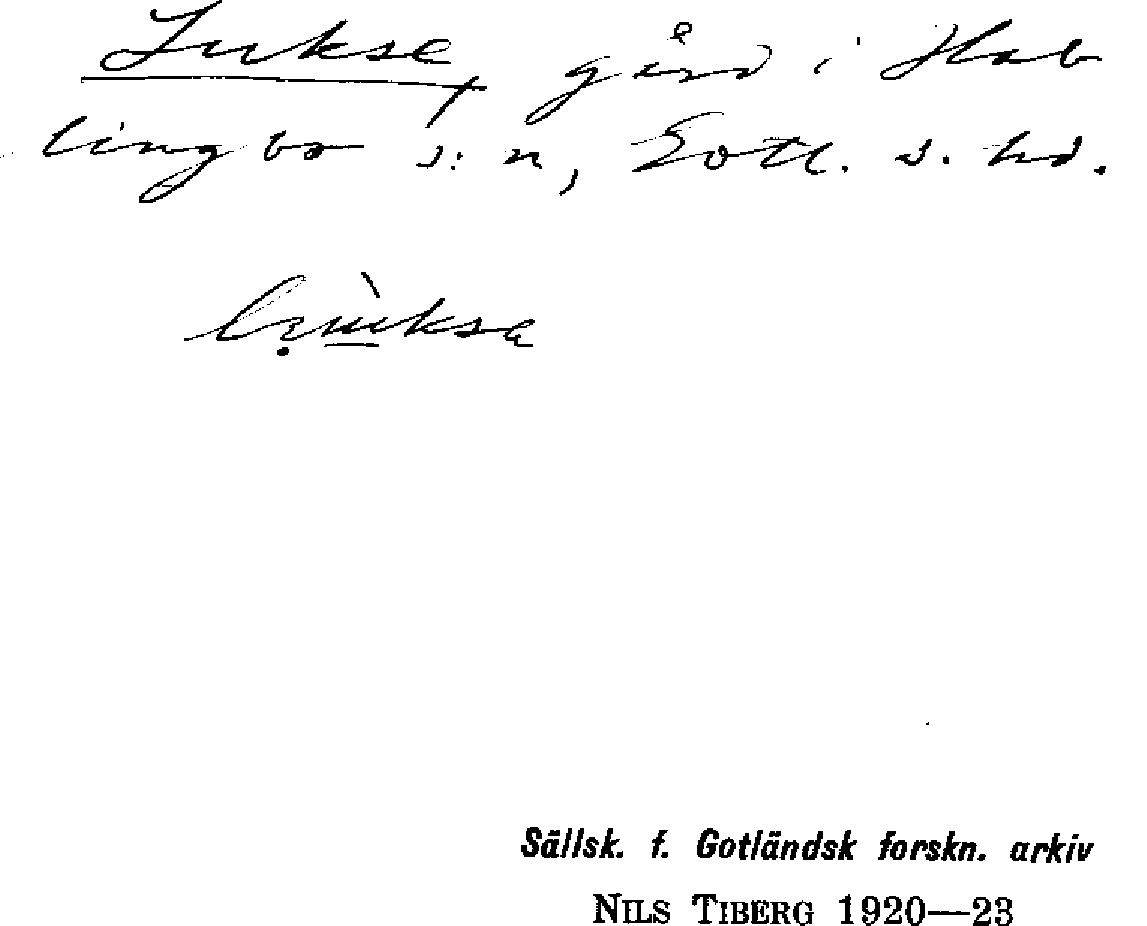 Lukse, gård i Hab
lingbo s:n, Gotl. s. hd.
Sällsk. f. Gotländsk forskn. arkiv
NILS TIBERG 1920—23